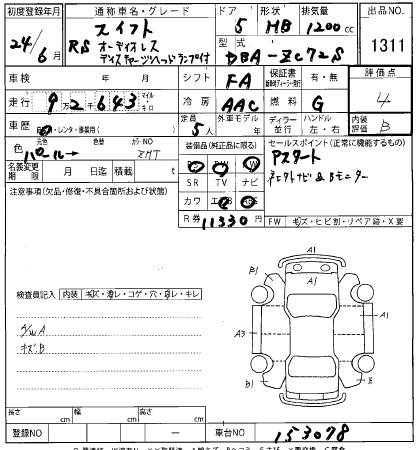 初度登録年月 通称車名・グレード ドア 形状 排気量 出品NO.
24/6 スイフト 5 HB 1200cc 1311
RS オーディオレス
ディスチャージヘッドランプ付
型式 DBA-ZC72S
車検 年 月 シフト FA 保証書 有・無 評価点
走行 9万2千643 マイル キロ 冷房 AAC 燃料 G 4
車歴 レンタ・事業用 定員 5人 外車モデル 年 ディーラー 並行 ハンドル 左・右 内装評価 B
色 元色 色替 カラーNO 装備品(純正品に限る) セールスポイント(正常に機能するもの)
パール ZMT PS PW アスタート
名義変更期限 月 日迄 積載 t SR TV ナビ ネクストナビ&Bモニター
注意事項(欠品・修復・不具合箇所および状態) カワ
R券 11330円 FW キズ・ヒビ割・リペア跡・X要
A1
B1
検査員記入 内装 キズ・汚レ・コゲ・穴・切レ・キレ
A1
A/W A
A3
キズ・B
B1 A1 E
長さ cm 幅 cm 高さ cm
登録NO ー 車台NO 153078